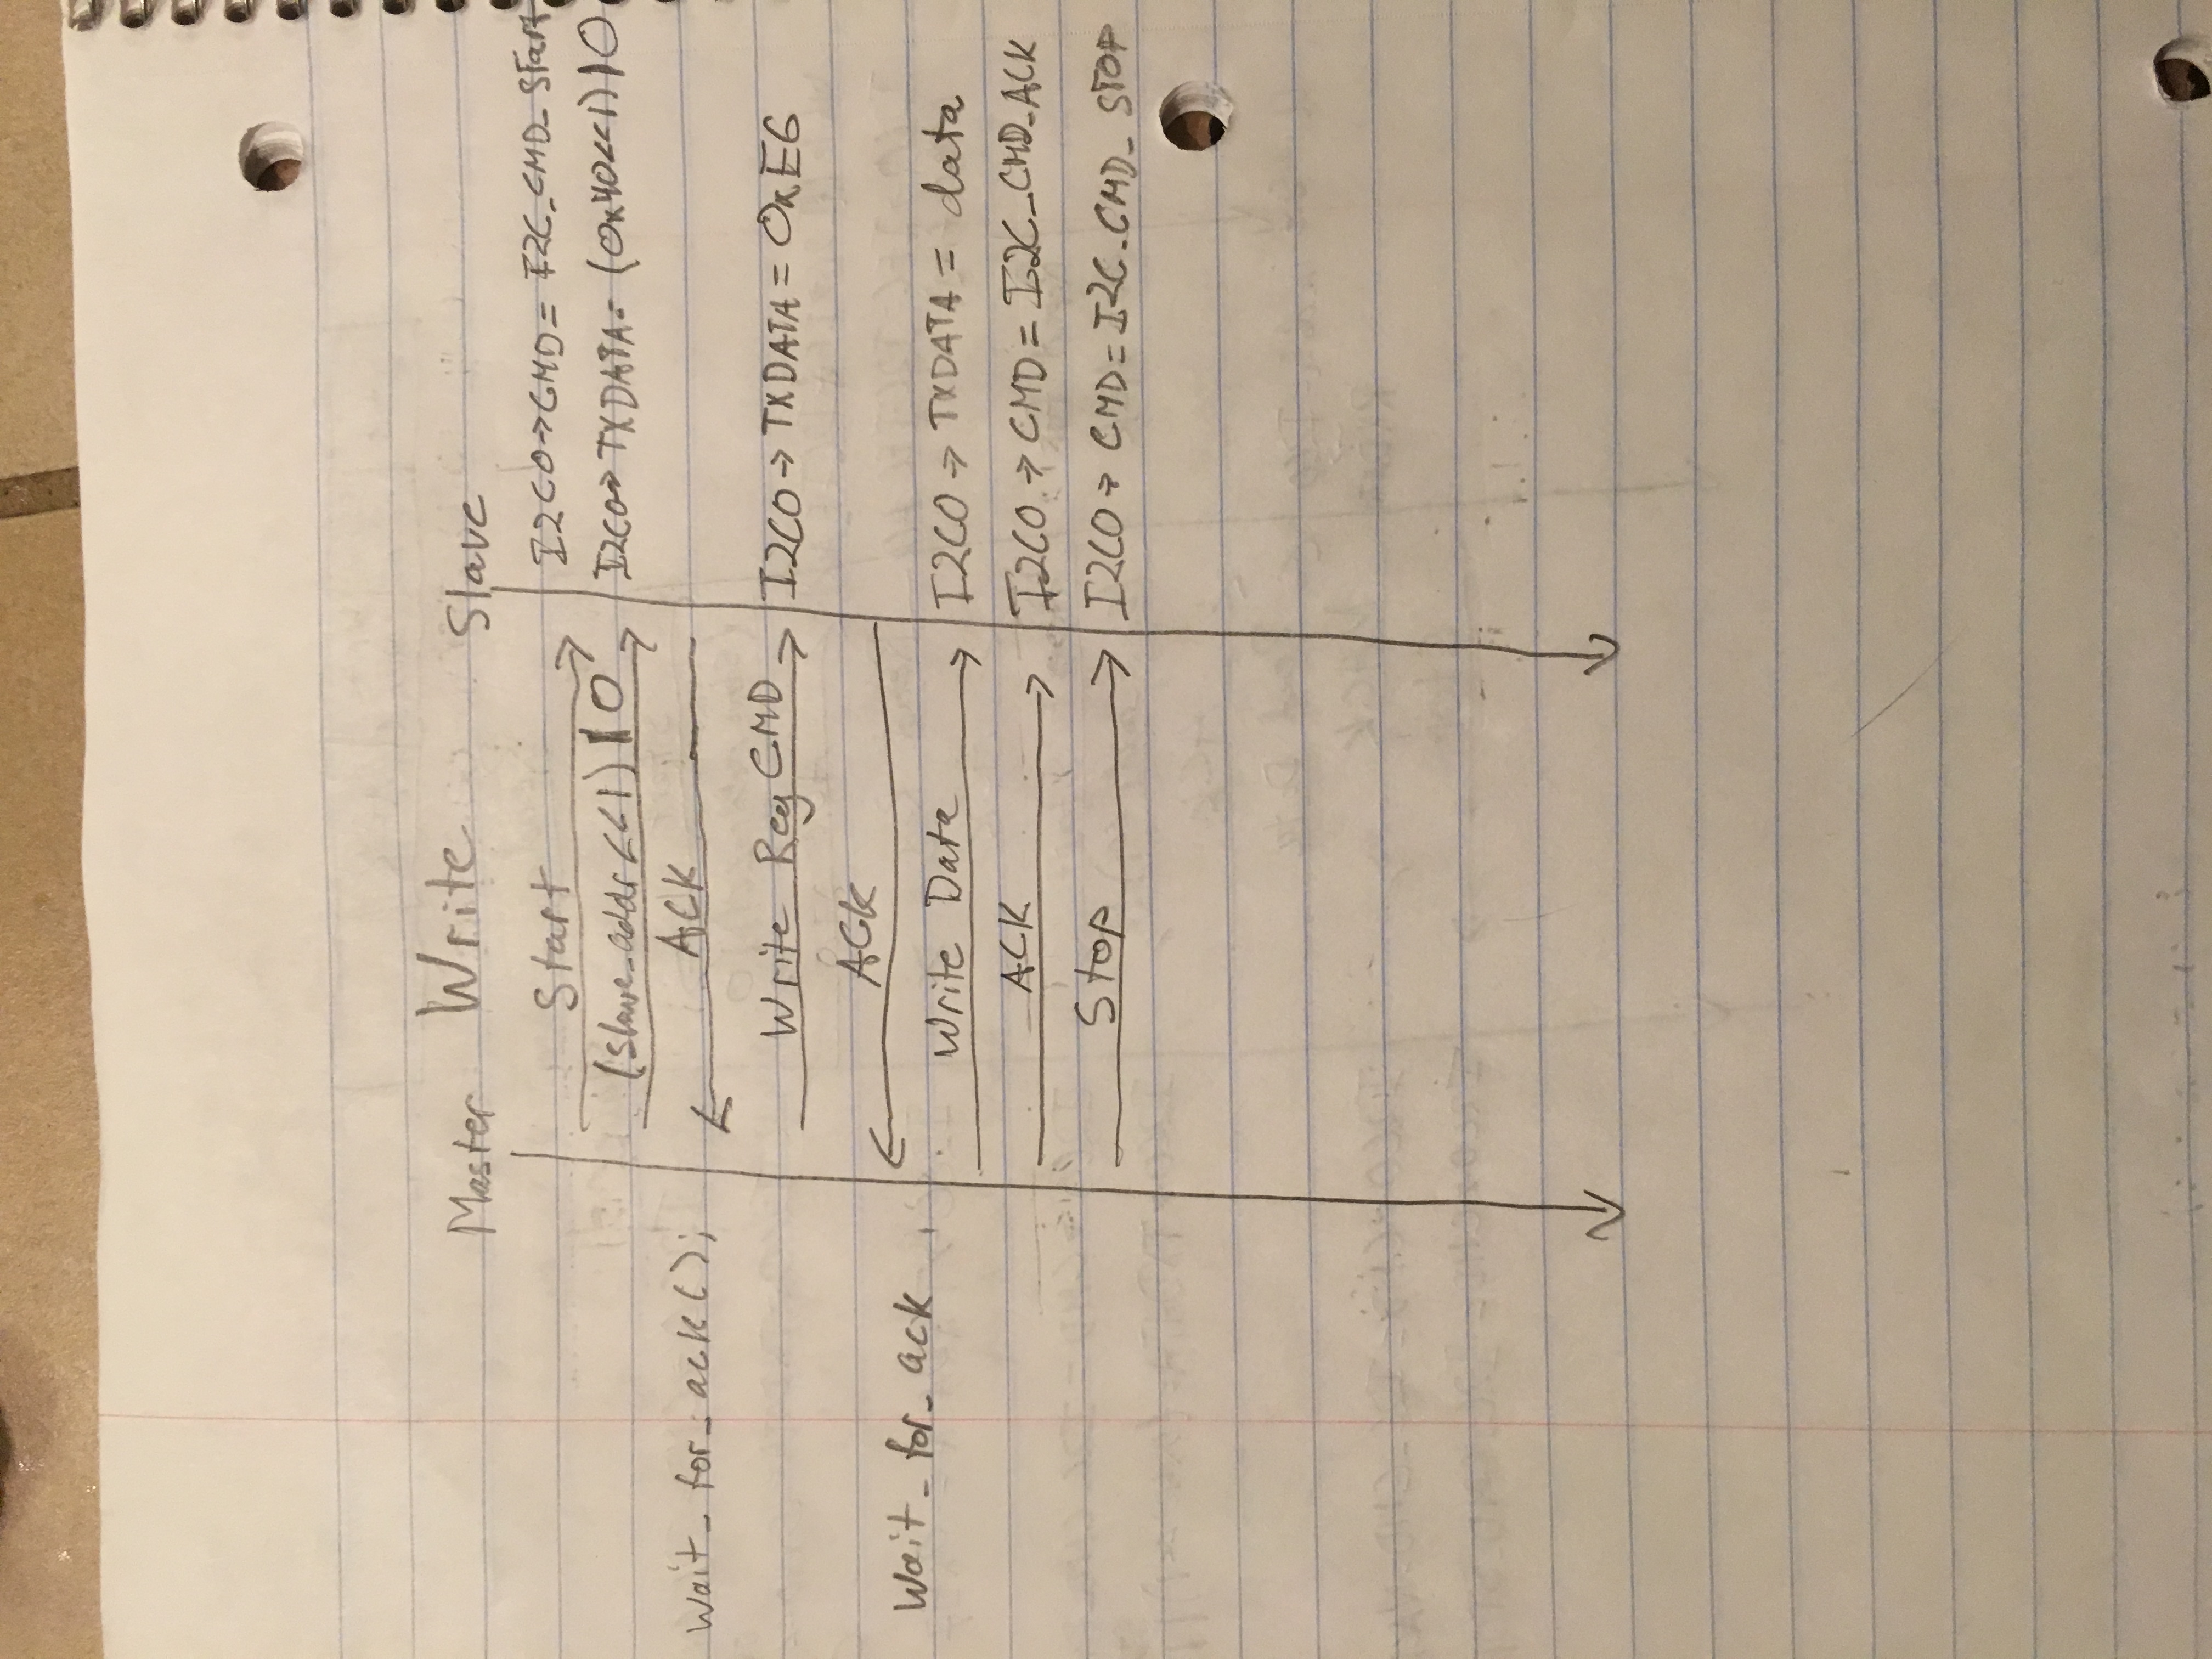 Master Write Slave
Start I2C0→CMD= I2C_CMD_Start
(slave_addr<<1)|0 I2C0→TXDATA= (0x40<<1)|0
Wait_for_ack(); ACK
Write Reg CMD I2C0→TXDATA = 0xE6
ACK
Wait_for_ack
Write Data I2C0→TXDATA = data
ACK I2C0→CMD = I2C_CMD_ACK
Stop I2C0→CMD=I2C_CMD_STOP